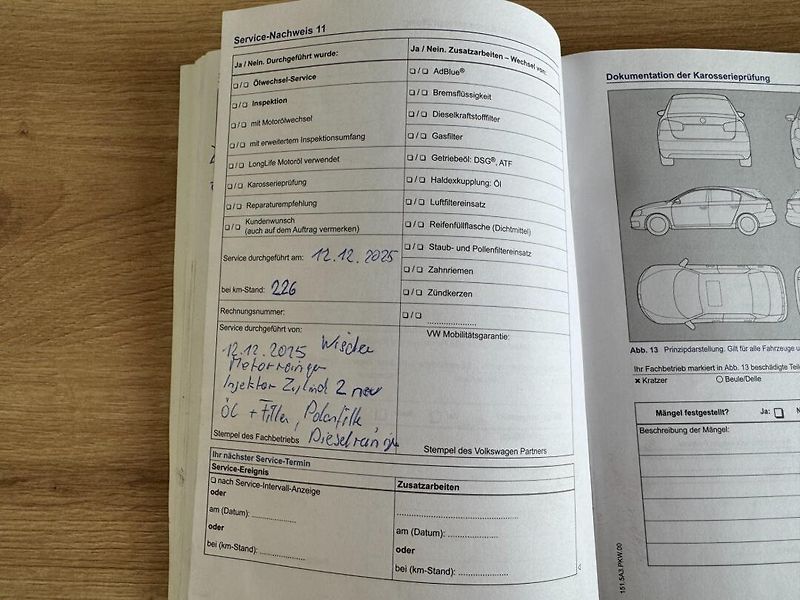 Service-Nachweis 11
Ja / Nein. Durchgeführt wurde:
☐/☐ Ölwechsel-Service
☐/☐ Inspektion
☐/☐ mit Motorölwechsel
☐/☐ mit erweitertem Inspektionsumfang
☐/☐ LongLife Motoröl verwendet
☐/☐ Karosserieprüfung
☐/☐ Reparaturempfehlung
☐/☐ Kundenwunsch
(auch auf dem Auftrag vermerken)
Service durchgeführt am: 12.12.2025
bei km-Stand: 226
Rechnungsnummer:
Service durchgeführt von:
12.12.2025 Wischer
Motorreiniger
Injektor Zylind 2 neu
Öl + Filter,
Stempel des Fachbetriebs
Ja / Nein. Zusatzarbeiten – Wechsel von:
☐/☐ AdBlue®
☐/☐ Bremsflüssigkeit
☐/☐ Dieselkraftstofffilter
☐/☐ Gasfilter
☐/☐ Getriebeöl: DSG®, ATF
☐/☐ Haldexkupplung: Öl
☐/☐ Luftfiltereinsatz
☐/☐ Reifenfüllflasche (Dichtmittel)
☐/☐ Staub- und Pollenfiltereinsatz
☐/☐ Zahnriemen
☐/☐ Zündkerzen
☐/☐ ....................
VW Mobilitätsgarantie:
Stempel des Volkswagen Partners
Ihr nächster Service-Termin
Service-Ereignis
☐ nach Service-Intervall-Anzeige
oder
am (Datum): ..................
oder
bei (km-Stand): ..................
Zusatzarbeiten
..................................
am (Datum): ....................
oder
bei (km-Stand): ....................
Dokumentation der Karosserieprüfung
Abb. 13 Prinzipdarstellung. Gilt für alle Fahrzeuge
Ihr Fachbetrieb markiert in Abb. 13 beschädigte Teile
× Kratzer ○ Beule/Delle
Mängel festgestellt? Ja: ☐
Beschreibung der Mängel:
151.5A3.PKW.00